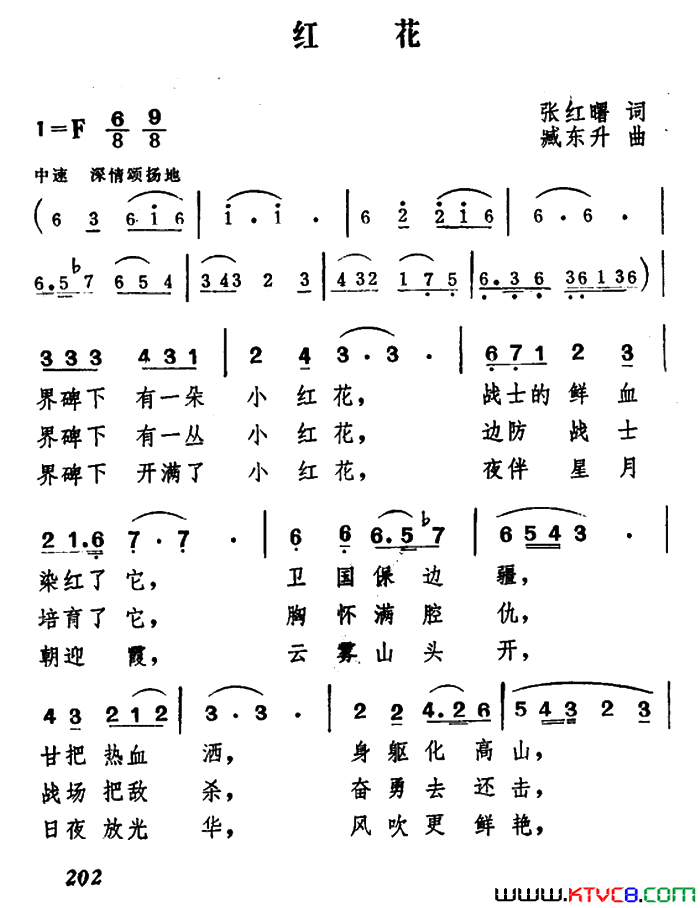 红 花
1=F 6/8 9/8
张红曙 词
臧东升 曲
中速 深情颂扬地
( 6 3 6·i 6 | i· i· | 6 2 2 i 6 | 6· 6· |
6.5 b7 6 5 4 | 3 4 3 2 3 | 4 3 2 1 7 5 | 6.3 6 3 6 1 3 6 ) |
3 3 3 4 3 1 | 2 4 3· 3· | 6 7 1 2 3 |
界碑下 有一朵 小 红 花, 战士的 鲜 血
界碑下 有一丛 小 红 花, 边防 战 士
界碑下 开满了 小 红 花, 夜伴 星 月
2 1.6 7· 7· | 6 6 6.5 b7 | 6 5 4 3· |
染红了 它, 卫 国 保 边 疆,
培育了 它, 胸 怀 满 腔 仇,
朝迎 霞, 云 雾 山 头 开,
4 3 2 1 2 | 3· 3· | 2 2 4.2 6 | 5 4 3 2 3 |
甘把 热血 洒, 身 躯 化 高 山,
战场 把敌 杀, 奋 勇 去 还 击,
日夜 放光 华, 风 吹 更 鲜 艳,
202
WWW.KTVC8.COM